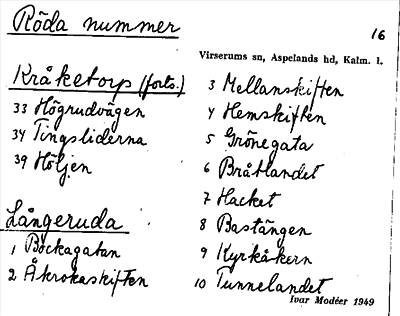 Röda nummer
16
Virserums sn, Aspelands hd, Kalm. l.
Kråketorp (forts.)
33 Högrudvägen
34 Tingsliderna
39 Höljen
Långeruda
1 Bockagatan
2 Åkrokaskiften
3 Mellanskiften
4 Hemskiften
5 Grönegata
6 Bråtlandet
7 Hacket
8 Bastängen
9 Kyrkåkern
10 Tunnelandet
Ivar Modéer 1949